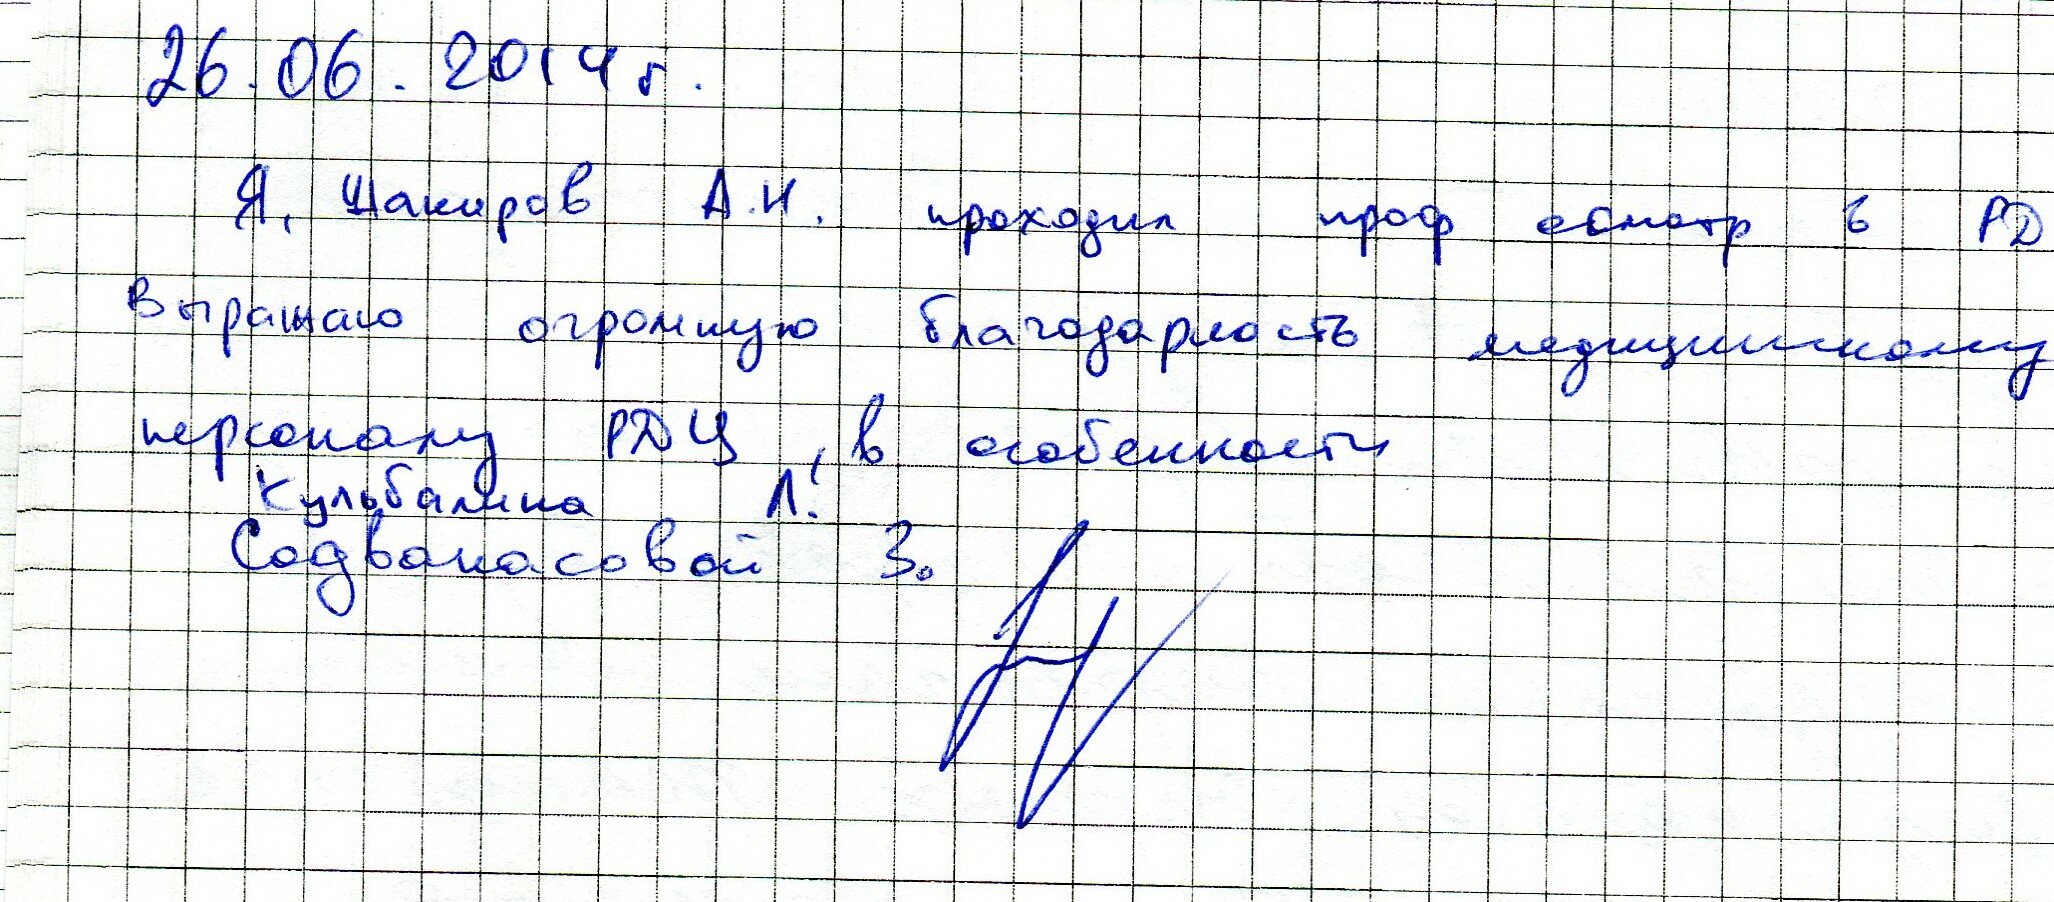 26.06.2014 г.
Я, Шакиров А.Н. проходил проф осмотр в РД
Выражаю огромную благодарность медицинскому
персоналу РДЦ, в особенности
Кульбалина Л.
Садвакасовой З.